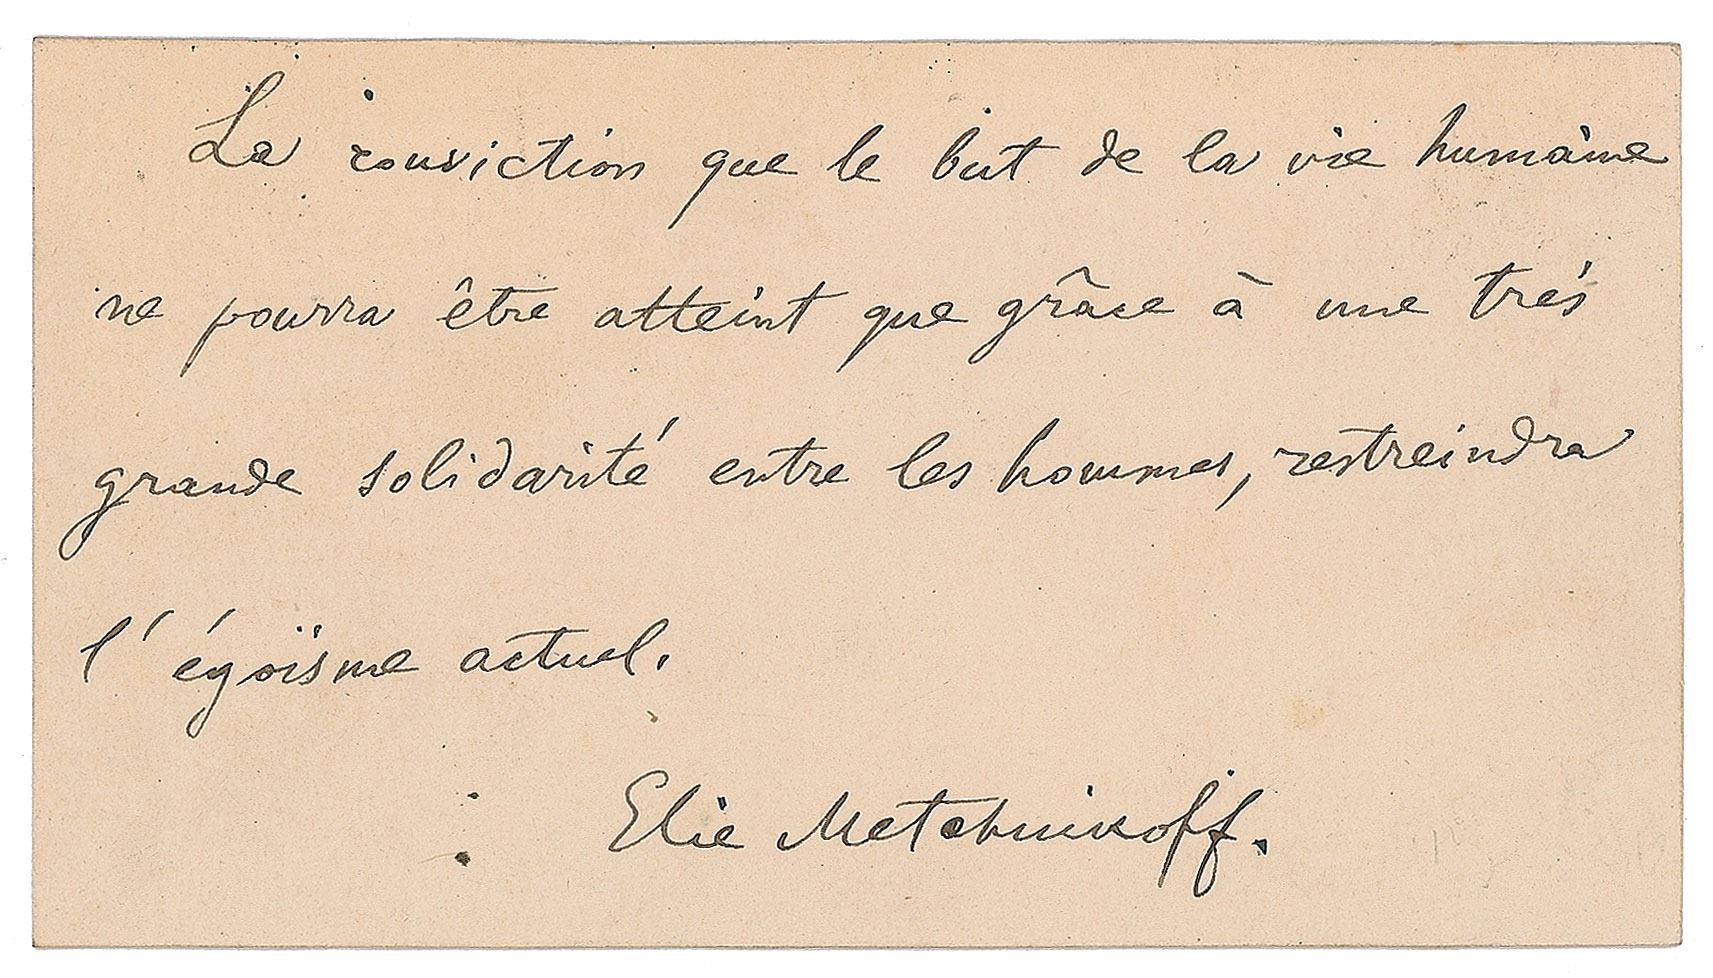 La conviction que le but de la vie humaine
ne pourra être atteint que grâce à une très
grande solidarité entre les hommes, restreindra
l'égoïsme actuel.
Elie Metchnikoff.